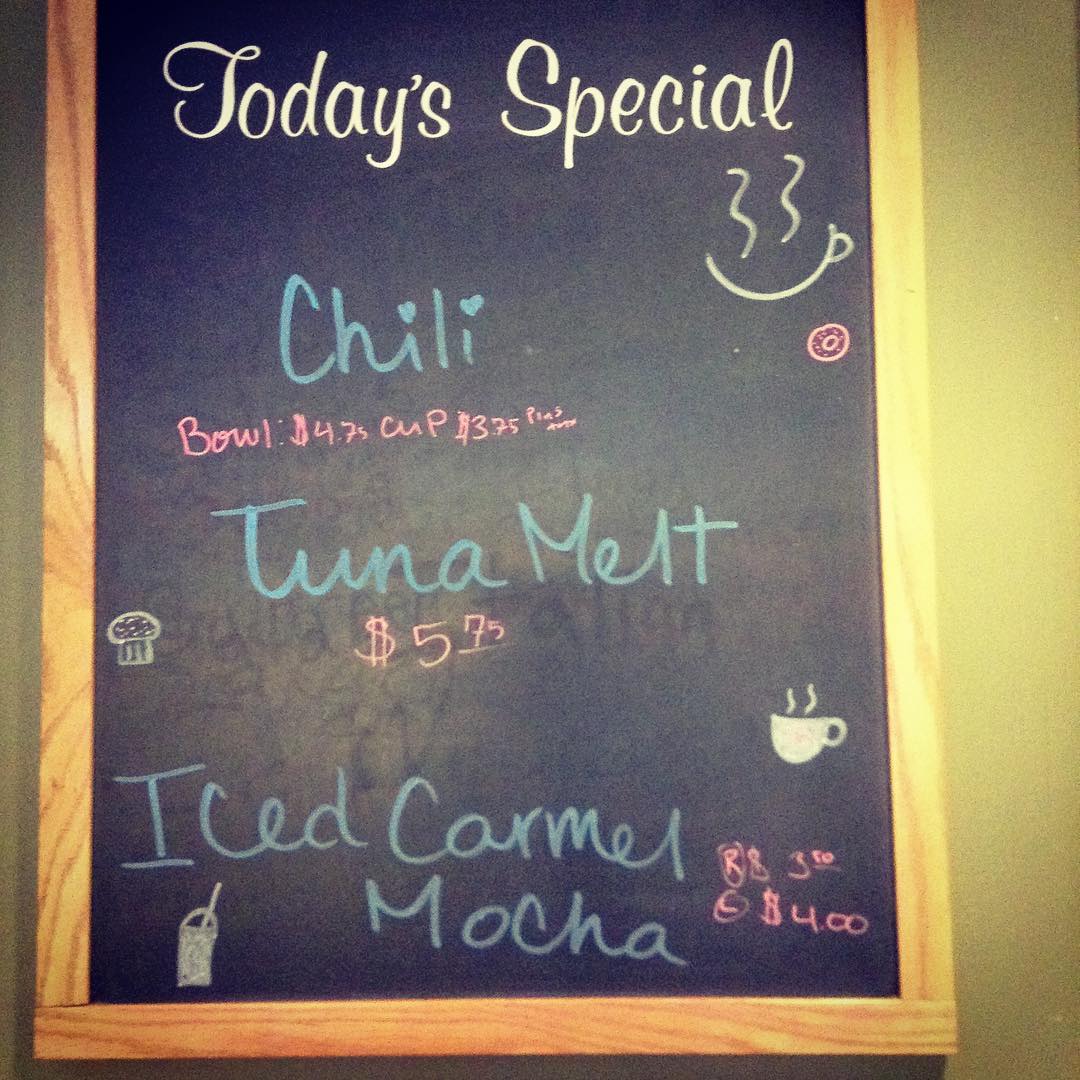 Today's Special
Chili
Bowl: $4.75 CUP $3.75
Tuna Melt
$5.75
Iced Carmel
Mocha
R $ 3.50
G $4.00